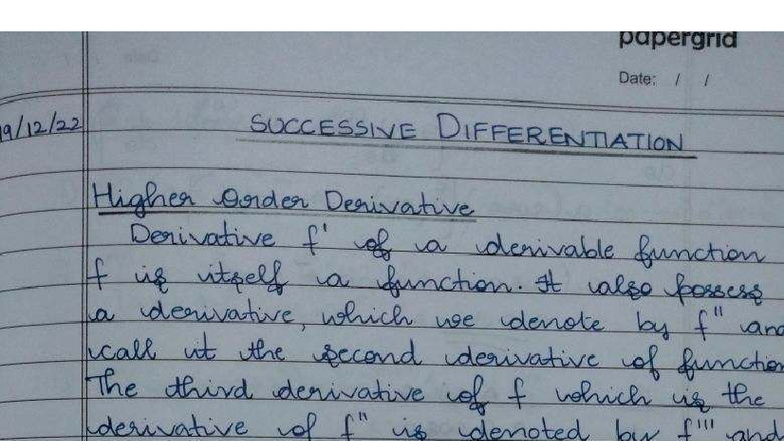 papergrid
Date: / /
19/12/22
SUCCESSIVE DIFFERENTIATION
Higher Order Derivative
Derivative f' of a derivable function
f is itself a function. It also possess
a derivative, which we denote by f" and
call it the second derivative of function
The third derivative of f which is the
derivative of f" is denoted by f''' and